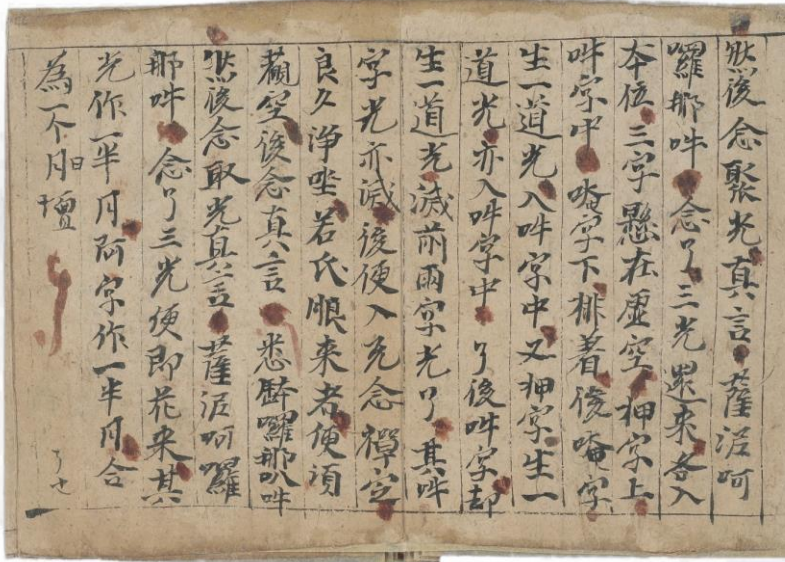 然後念聚光真言薩泥呵
囉那吽念了三光還來各入
本位三字懸在虛空押字上
吽字中唵字下排著後唵字
生一道光入吽字中又押字生一
道光亦入吽字中了後吽字却
生一道光滅前兩字光了其吽
字光亦滅後便入无念禪定
良久淨坐若氏眼来者便須
觀空後念真言悉䤵囉那叭吽
然後念取光真言薩泥呵囉
那吽念了三光便即花来其
光作一半月阿字作一半月合
為一个月日壇
了也